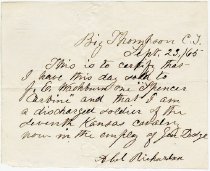 Big Thompson C.T.
Sept. 23, '65
This is to certify that
I have this day sold to
J. C. Washburn one "Spencer
Carbine" and that I am
a discharged soldier of the
seventh Kansas cavalry
now in the employ of Genl Dodge
Abel Richardson